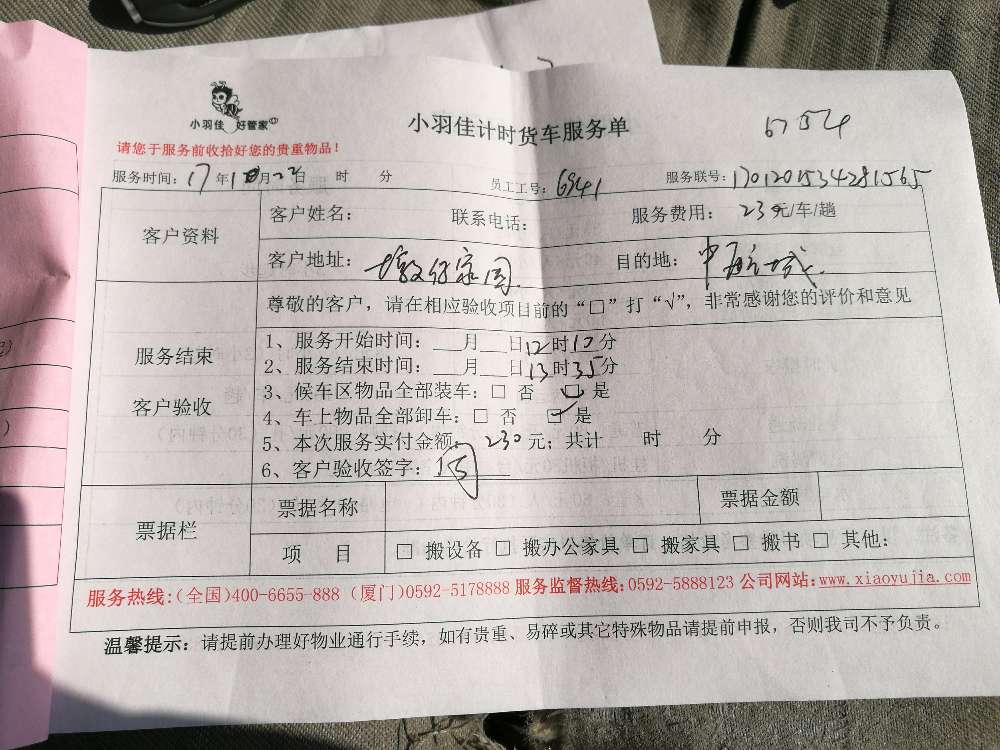 小羽佳 好管家
小羽佳计时货车服务单
6754
请您于服务前收拾好您的贵重物品!
服务时间: 17年10月22日 时 分 员工工号: 6941 服务联号:
客户资料
客户姓名: 联系电话: 服务费用: 230元/车/趟
客户地址: 目的地: 中航城
服务结束 客户验收
尊敬的客户,请在相应验收项目前的“□”打“√”,非常感谢您的评价和意见
1、服务开始时间: ___月___日12时10分
2、服务结束时间: ___月___日13时35分
3、候车区物品全部装车:□ 否 ☑ 是
4、车上物品全部卸车:□ 否 ☑ 是
5、本次服务实付金额: 230元;共计 时 分
6、客户验收签字:
票据栏
票据名称 票据金额
项 目 □ 搬设备 □ 搬办公家具 □ 搬家具 □ 搬书 □ 其他:
服务热线:(全国)400-6655-888(厦门)0592-5178888 服务监督热线:0592-5888123 公司网站:www.xiaoyujia.com
温馨提示: 请提前办理好物业通行手续,如有贵重、易碎或其它特殊物品请提前申报,否则我司不予负责。